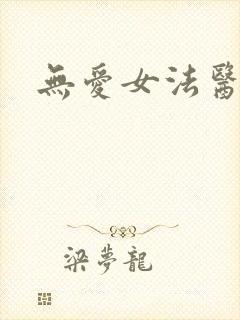 無愛女法醫
梁夢龍